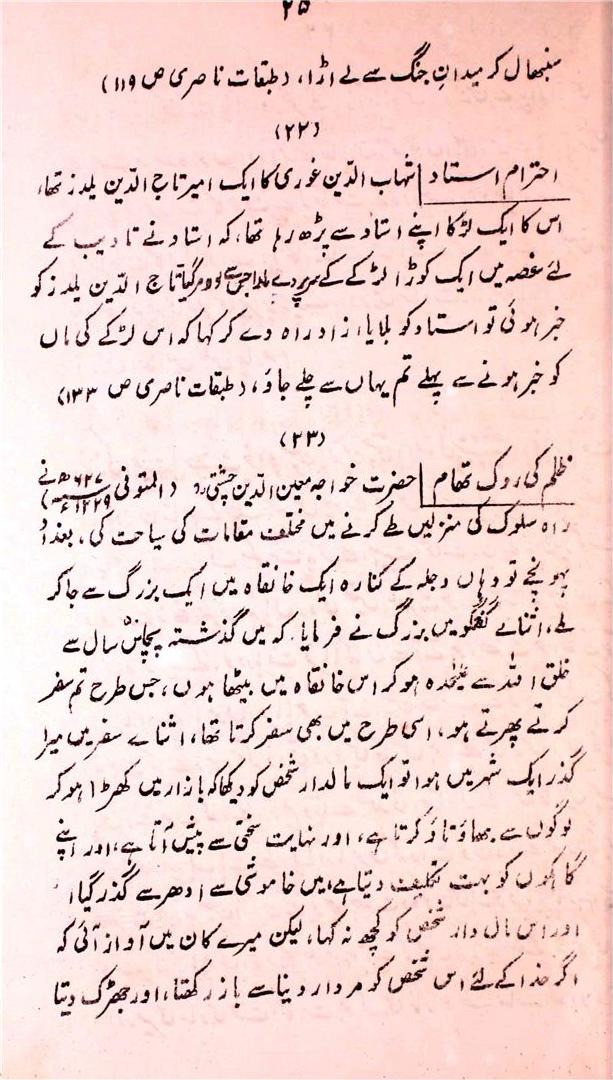 ۲۵
سنبھال کر میدانِ جنگ سے لے اڑا، (طبقات ناصری ص ۱۱۹)
(۲۲)
احترام استاد شہاب الدین غوری کا ایک امیر تاج الدین یلدز تھا،
اس کا ایک لڑکا اپنے استاد سے پڑھ رہا تھا، کہ استاد نے تادیب کے
لئے غصہ میں ایک کوڑا لڑکے کے سر پر دے مارا جس سے وہ مر گیا تاج الدین یلدز کو
خبر ہوئی تو استاد کو بلایا، زاد راہ دے کر کہا کہ اس لڑکے کی ماں
کو خبر ہونے سے پہلے تم یہاں سے چلے جاؤ، (طبقات ناصری ص ۱۳۳)
(۲۳)
ظلم کی روک تھام حضرت خواجہ معین الدین چشتیؒ (المتوفی ۶۲۷ھ ۱۲۲۹ء) نے
راہ سلوک کی منزلیں طے کرنے میں مختلف مقامات کی سیاحت کی، بغداد
پہونچے تو وہاں دجلہ کے کنارہ ایک خانقاہ میں ایک بزرگ سے جا کر
ملے، اثنائے گفتگو میں بزرگ نے فرمایا کہ میں گذشتہ پچاس سال سے
خلق اللہ سے علیٰحدہ ہو کر اس خانقاہ میں بیٹھا ہوں، جس طرح تم سفر
کرتے پھرتے ہو، اسی طرح میں بھی سفر کرتا تھا، اثنائے سفر میں میرا
گذر ایک شہر میں ہوا تو ایک مالدار شخص کو دیکھا کہ بازار میں کھڑا ہو کر
لوگوں سے بھاؤ تاؤ کرتا ہے، اور نہایت سختی سے پیش آتا ہے، اور اپنے
گاہکوں کو بہت تکلیف دیتا ہے، میں خاموشی سے ادھر سے گذر گیا،
اور اس مال دار شخص کو کچھ نہ کہا، لیکن میرے کان میں آواز آئی کہ
اگر خدا کے لئے اس شخص کو مردار دینا سے باز رکھتا، اور جھڑک دیتا